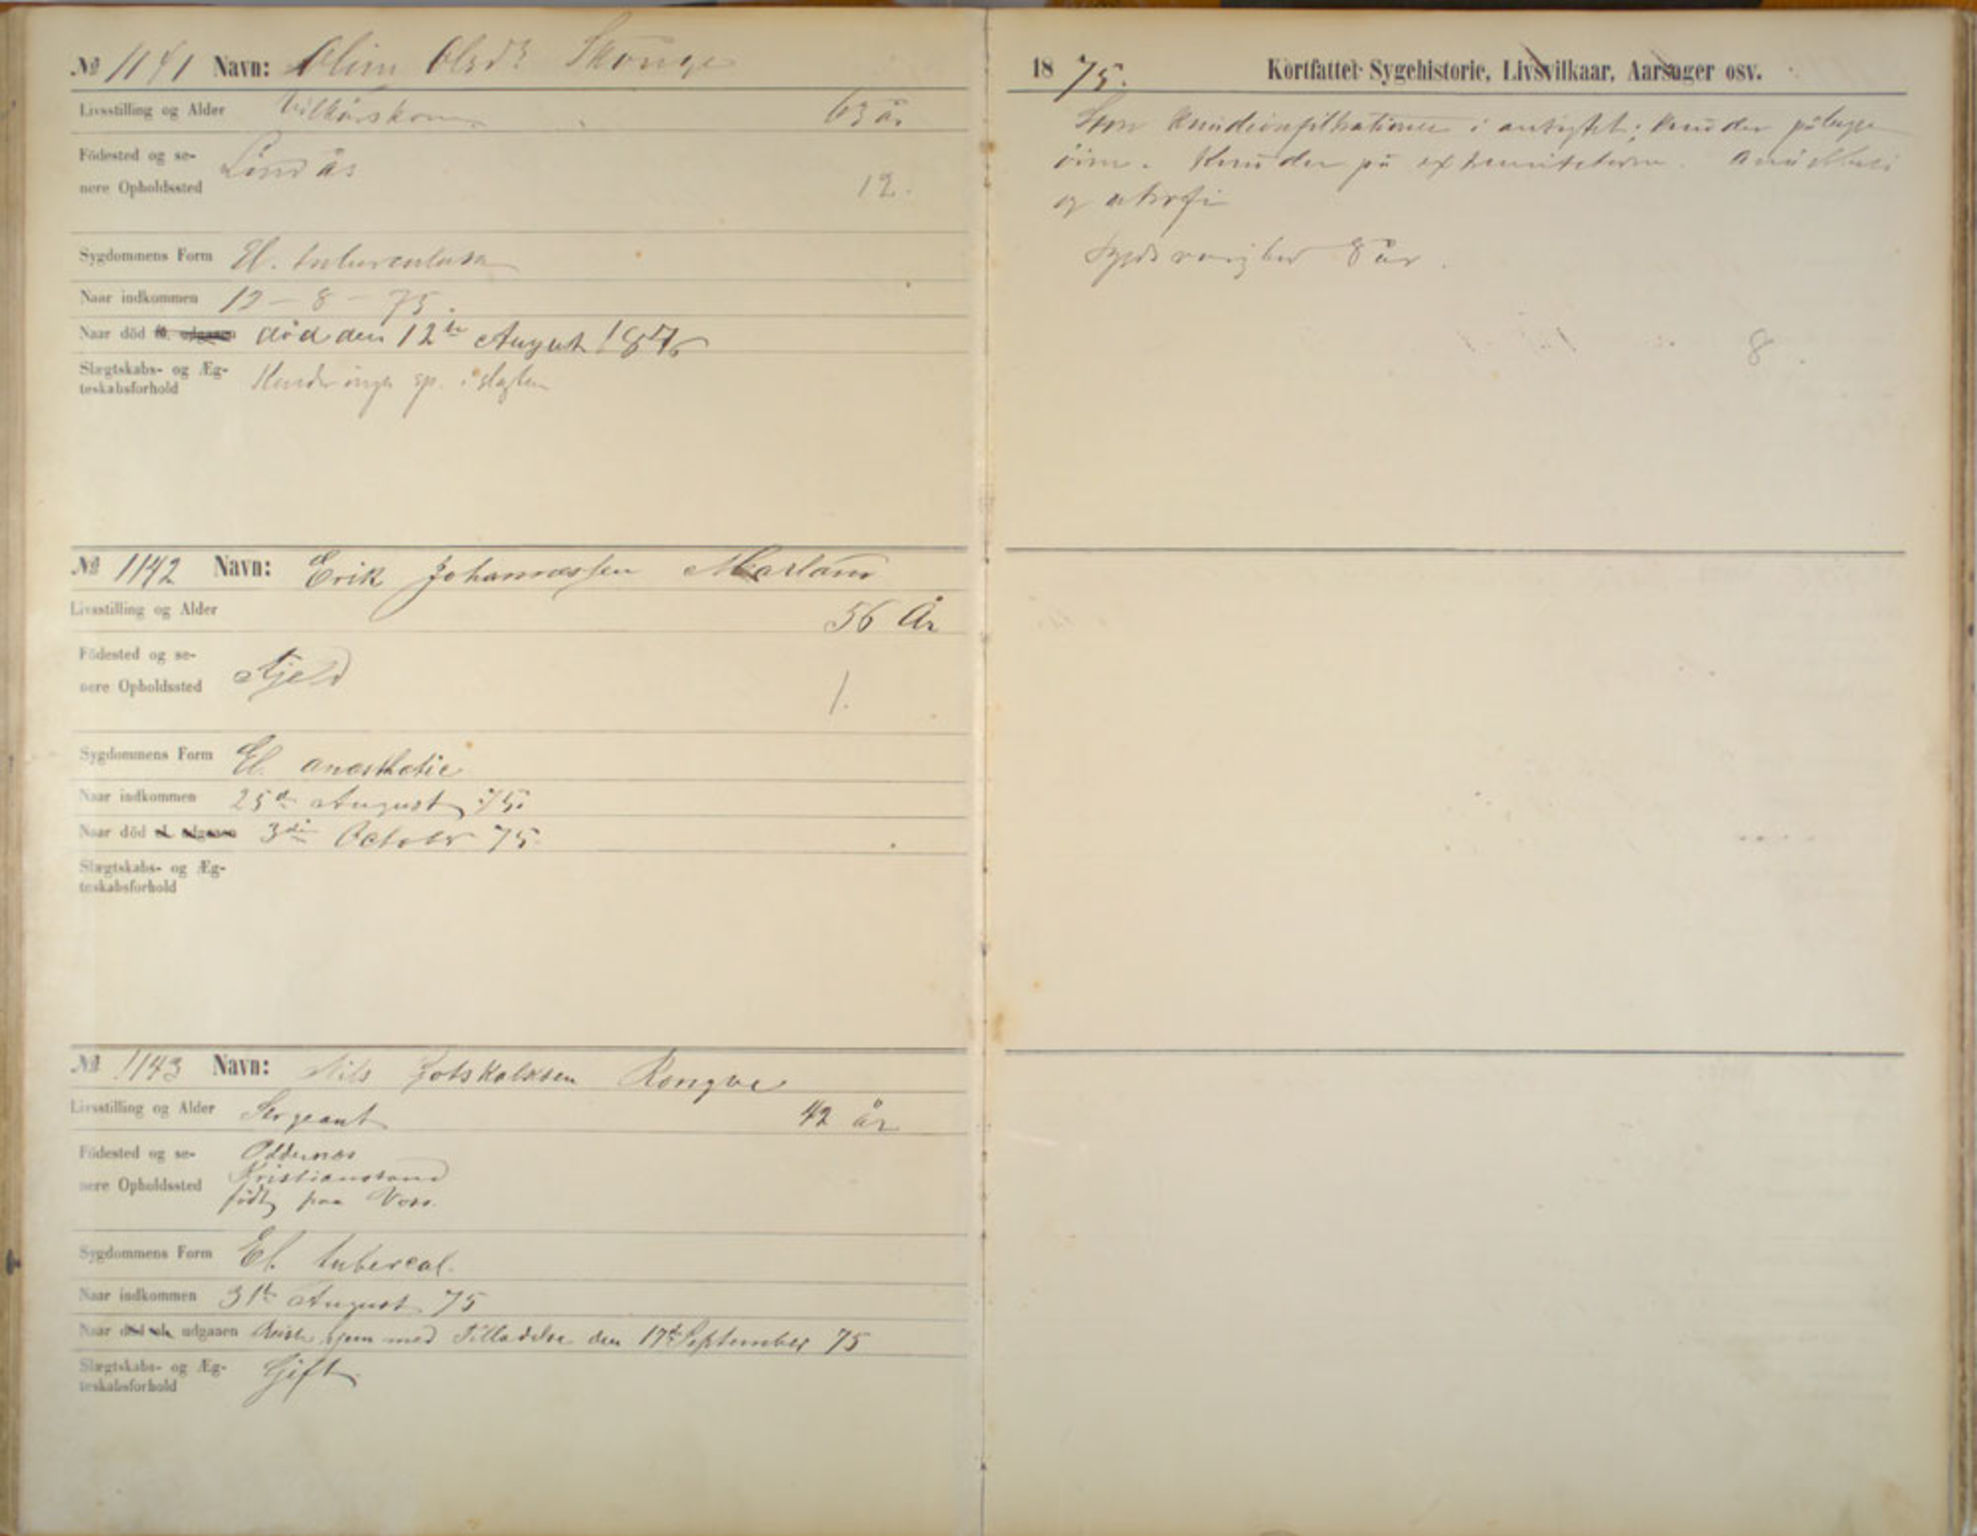 № 1141 Navn: Olsdr
Livsstilling og Alder Vilkårskone 63 år
Födested og se-
nere Opholdssted Lindås 12.
Sygdommens Form El. tuberculosa
Naar indkommen 12 - 8 - 75.
Naar död el. udgaaen død den 12te August 1876
Slægtskabs- og Æg-
teskabsforhold Kender ingen sp. i slægten
№ 1142 Navn: Erik Johannessen
Livsstilling og Alder 56 År
Födested og se-
nere Opholdssted Fjeld 1.
Sygdommens Form El. anæsthetic
Naar indkommen 25de August 75.
Naar död el. udgaaen 3die October 75.
Slægtskabs- og Æg-
teskabsforhold
№ 1143 Navn: Nils Gotskalksen Rongve
Livsstilling og Alder Sergeant 42 år
Födested og se- Oddernæs
nere Opholdssted Kristianssand
født paa Voss.
Sygdommens Form El. tubercul.
Naar indkommen 31te August 75
Naar död el. udgaaen Reiste hjem med Tilladelse den 17de September 75
Slægtskabs- og Æg-
teskabsforhold Gift
1875. Kortfattet Sygehistorie, Livsvilkaar, Aarsager osv.
knudeinfiltrationer i ansigtet; knuder på begge
öine. Knuder på extremiteterne.
og atrofi
Sygds varighed 8 år.
8